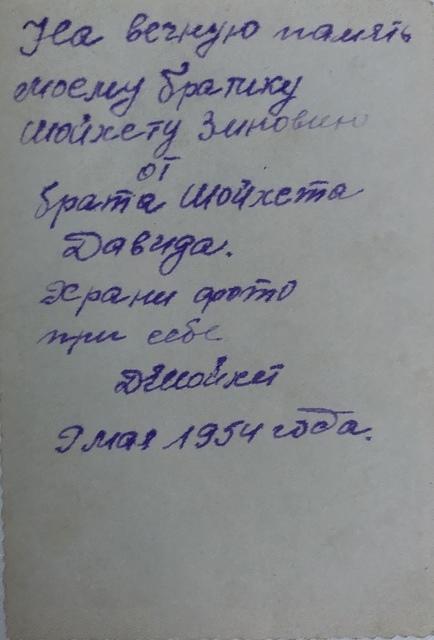 На вечную память
моему братику
Шойхету Зиновию
от
брата Шойхета
Давида.
Храни фото
при себе
ДШойхет
9 мая 1954 года.